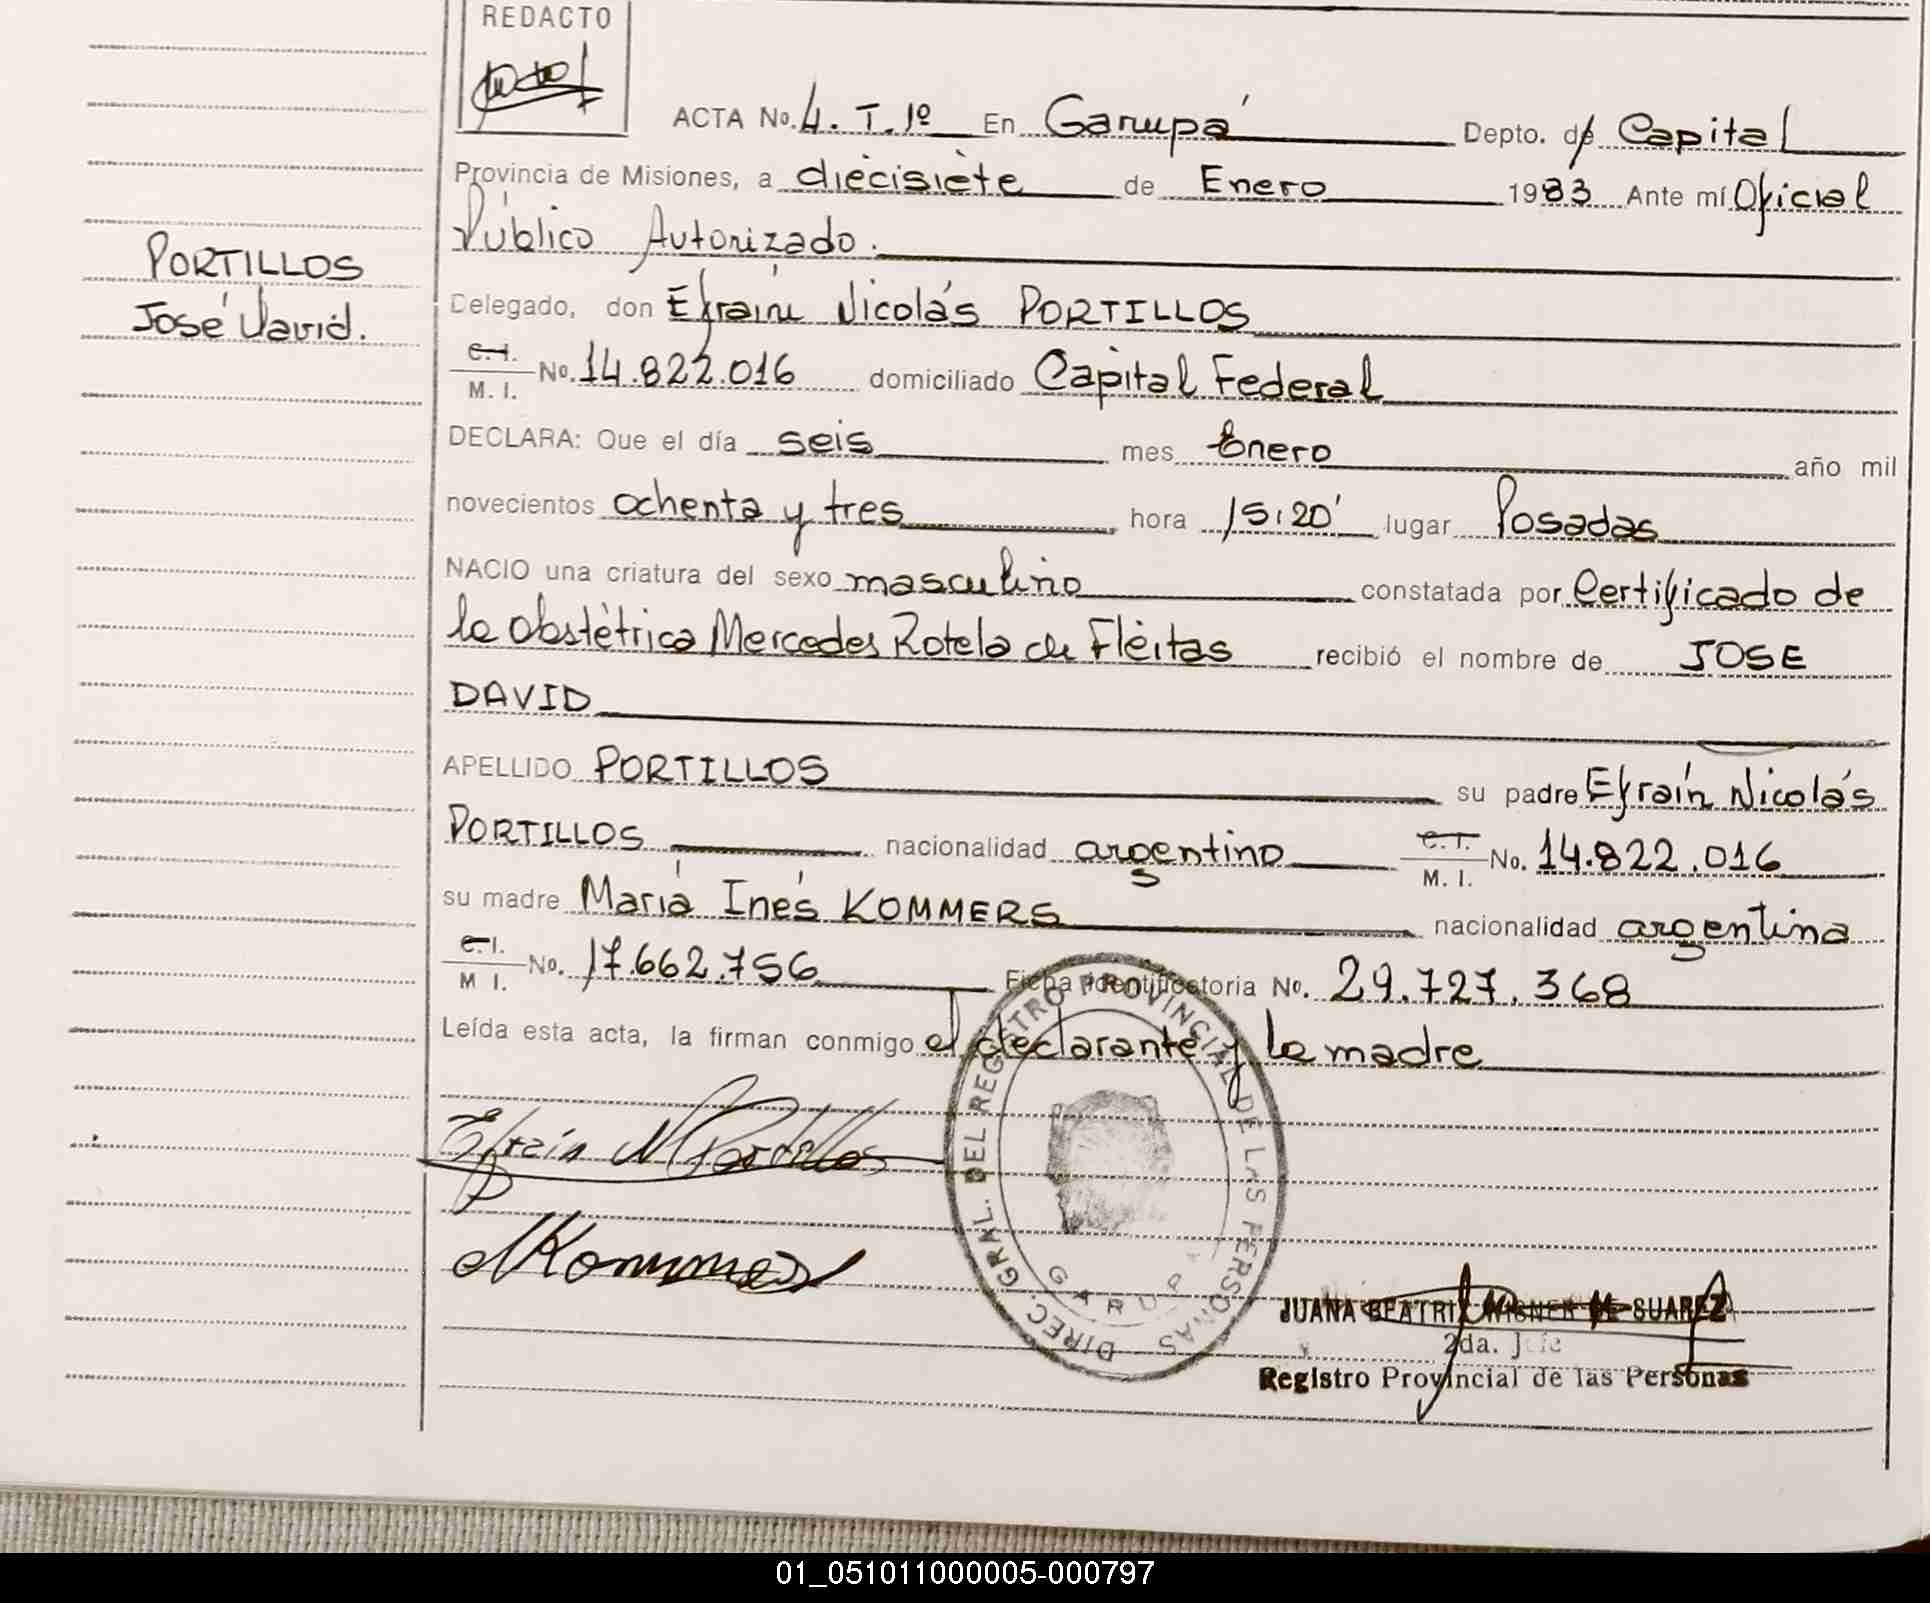 REDACTO
ACTA No. 4. T. 1º En Garupá Depto. de Capital
Provincia de Misiones, a diecisiete de Enero 1983 Ante mí Oficial
Público Autorizado.
PORTILLOS
José David.
Delegado, don Efraín Nicolás PORTILLOS
C. I.
M. I. No. 14.822.016 domiciliado Capital Federal
DECLARA: Que el día seis mes Enero año mil
novecientos ochenta y tres hora 15:20' lugar Posadas
NACIO una criatura del sexo masculino constatada por Certificado de
la Obstétrica Mercedes Rotela de Fleitas recibió el nombre de JOSE
DAVID
APELLIDO PORTILLOS su padre Efraín Nicolás
PORTILLOS nacionalidad argentino C. I. M. I. No. 14.822.016
su madre María Inés KOMMERS nacionalidad argentina
C. I.
M I. No. 17.662.756 Ficha identificatoria No. 29.727.368
Leída esta acta, la firman conmigo el declarante y la madre
Efraín N Portillos
Kommers
DIREC. GRAL. DEL REGISTRO PROVINCIAL DE LAS PERSONAS
GARUPA
JUANA BEATRIZ DE SUAREZ
2da. Jefe
Registro Provincial de las Personas
01_051011000005-000797